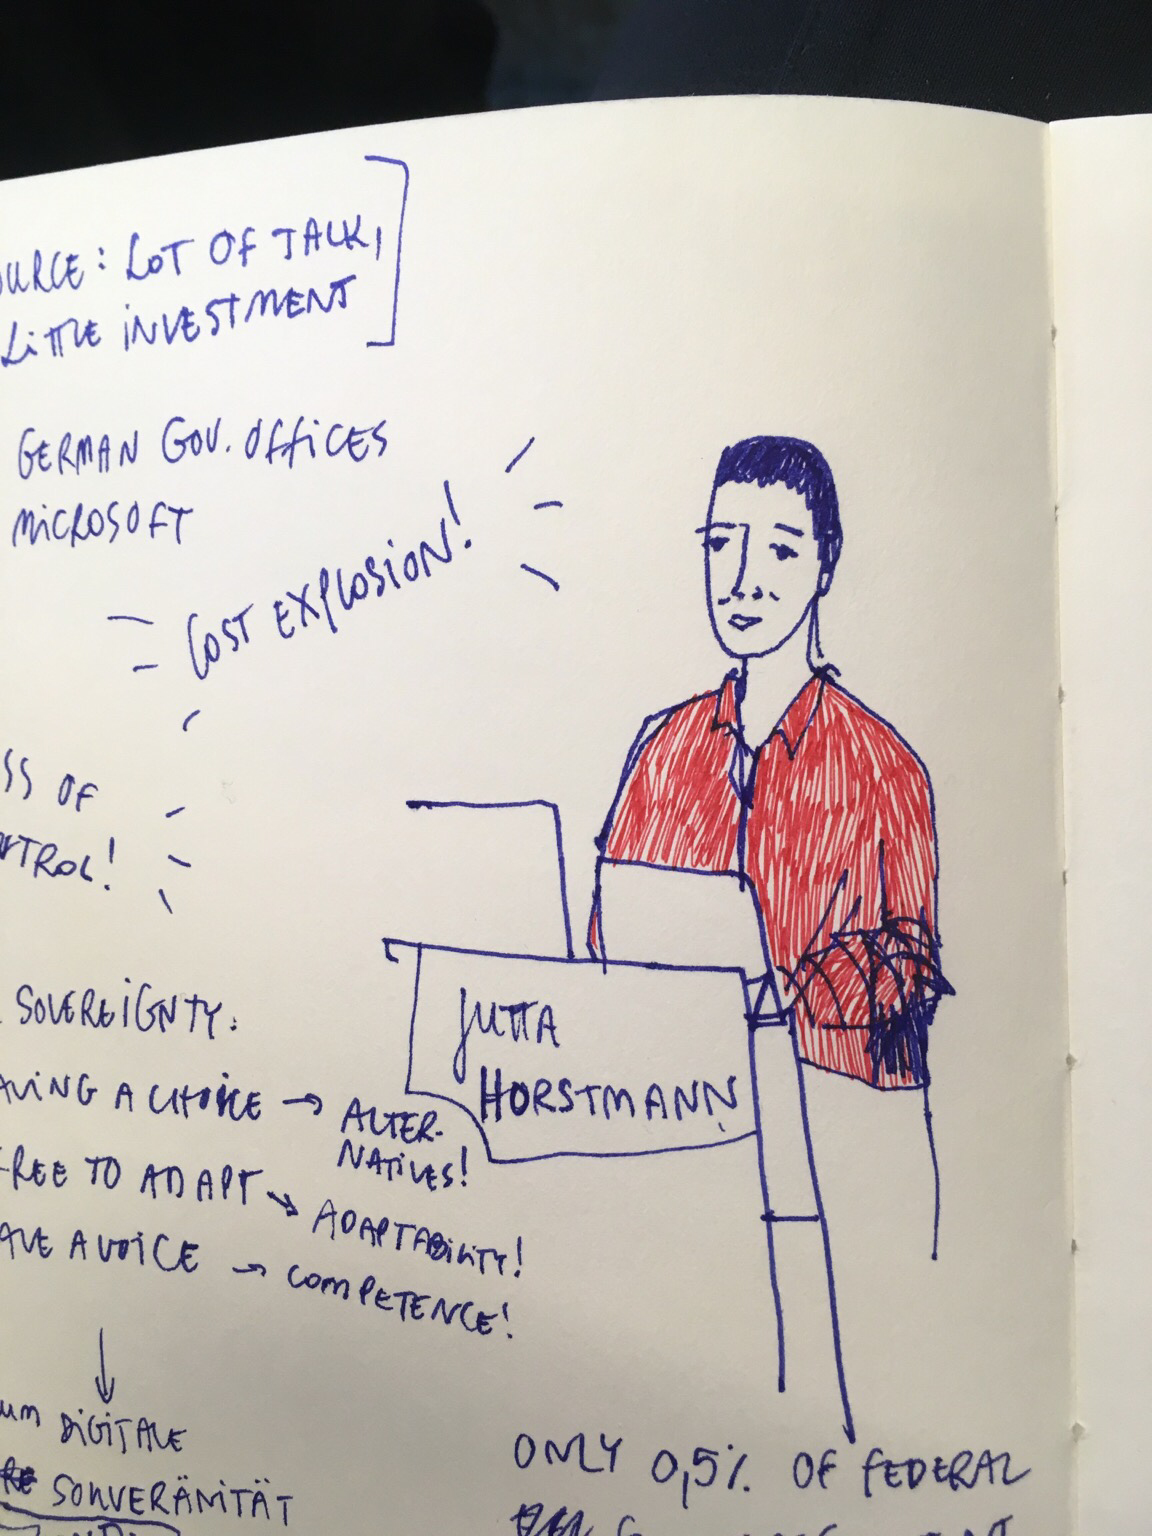 OURCE: LOT OF TALK,
LITTLE INVESTMENT
GERMAN GOV. OFFICES
MICROSOFT
COST EXPLOSION!
SS OF
TROL!
SOVEREIGNTY:
AVING A CHOICE → ALTER-
NATIVES!
FREE TO ADAPT → ADAPTABILITY!
AVE A VOICE → COMPETENCE!
JUTTA
HORSTMANN
UM DIGITALE
SOUVERÄNITÄT
ONLY 0,5% OF FEDERAL